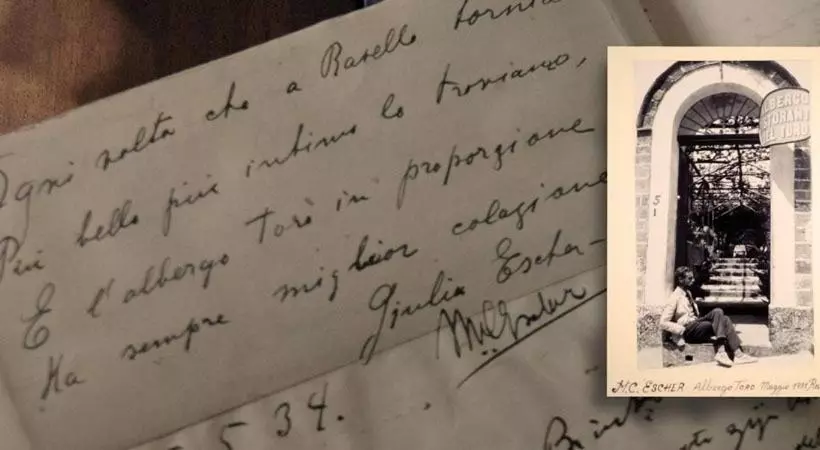 Ogni volta che a Ravello tornia
Più bello più intimo lo troviamo,
E l'albergo Torò in proporzione
Ha sempre miglior colazione
Giulia Escher-
MCEscher
5 34.
ALBERGO
STORANT
EL TORO
5
1
M.C. ESCHER Albergo Toro Maggio 1931